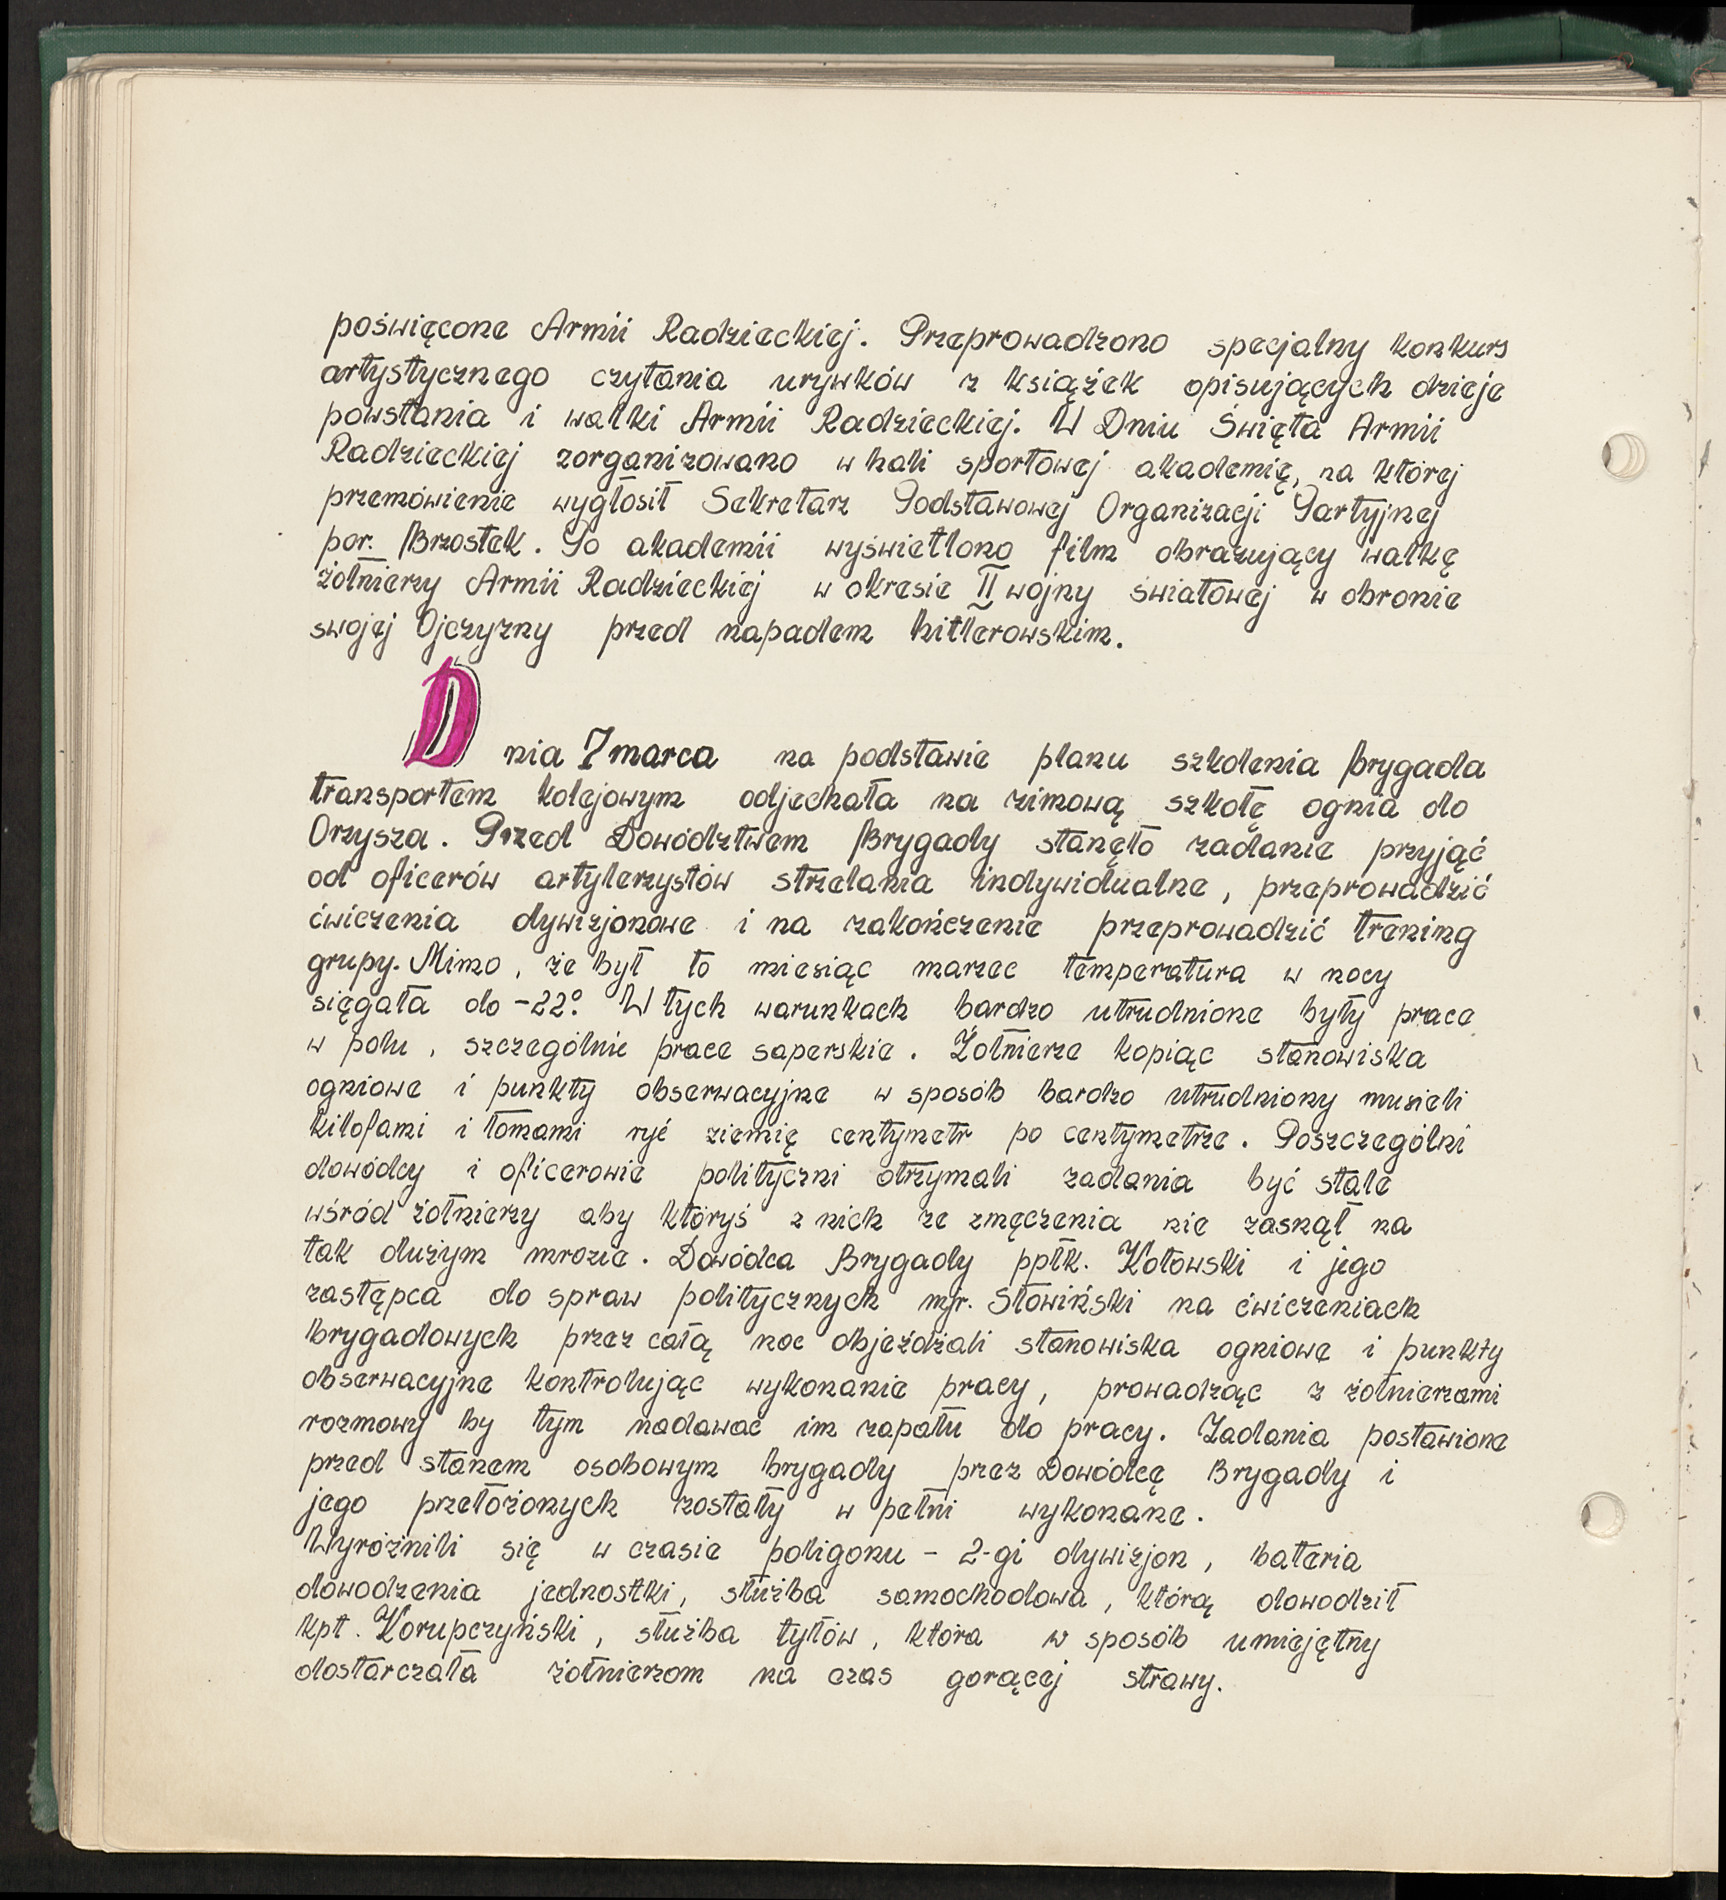 poświęcone Armii Radzieckiej. Przeprowadzono specjalny konkurs
artystycznego czytania urywków z książek opisujących dzieje
powstania i walki Armii Radzieckiej. W Dniu Święta Armii
Radzieckiej zorganizowano w hali sportowej akademię, na której
przemówienie wygłosił Sekretarz Podstawowej Organizacji Partyjnej
por. Brzostek. Po akademii wyświetlono film obrazujący walkę
żołnierzy Armii Radzieckiej w okresie II wojny światowej w obronie
swojej Ojczyzny przed napadem hitlerowskim.
Dnia 7 marca na podstawie planu szkolenia Brygada
transportem kolejowym odjechała na zimową szkołę ognia do
Orzysza. Przed Dowództwem Brygady stanęło zadanie przyjąć
od oficerów artylerzystów strzelania indywidualne, przeprowadzić
ćwiczenia dywizjonowe i na zakończenie przeprowadzić trening
grupy. Mimo, że był to miesiąc marzec temperatura w nocy
sięgała do -22°. W tych warunkach bardzo utrudnione były prace
w polu, szczególnie prace saperskie. Żołnierze kopiąc stanowiska
ogniowe i punkty obserwacyjne w sposób bardzo utrudniony musieli
kilofami i łomami ryć ziemię centymetr po centymetrze. Poszczególni
dowódcy i oficerowie polityczni otrzymali zadania być stale
wśród żołnierzy aby któryś z nich ze zmęczenia nie zasnął na
tak dużym mrozie. Dowódca Brygady ppłk. Kotowski i jego
zastępca do spraw politycznych mjr. Słowiński na ćwiczeniach
brygadowych przez całą noc objeżdżali stanowiska ogniowe i punkty
obserwacyjne kontrolując wykonanie pracy, prowadząc z żołnierzami
rozmowy by tym nadawać im zapału do pracy. Zadania postawione
przed stanem osobowym brygady przez Dowódcę Brygady i
jego przełożonych zostały w pełni wykonane.
Wyróżnili się w czasie poligonu - 2-gi dywizjon, bateria
dowodzenia jednostki, służba samochodowa, którą dowodził
kpt. Korupczyński, służba tyłów, która w sposób umiejętny
dostarczała żołnierzom na czas gorącej strawy.